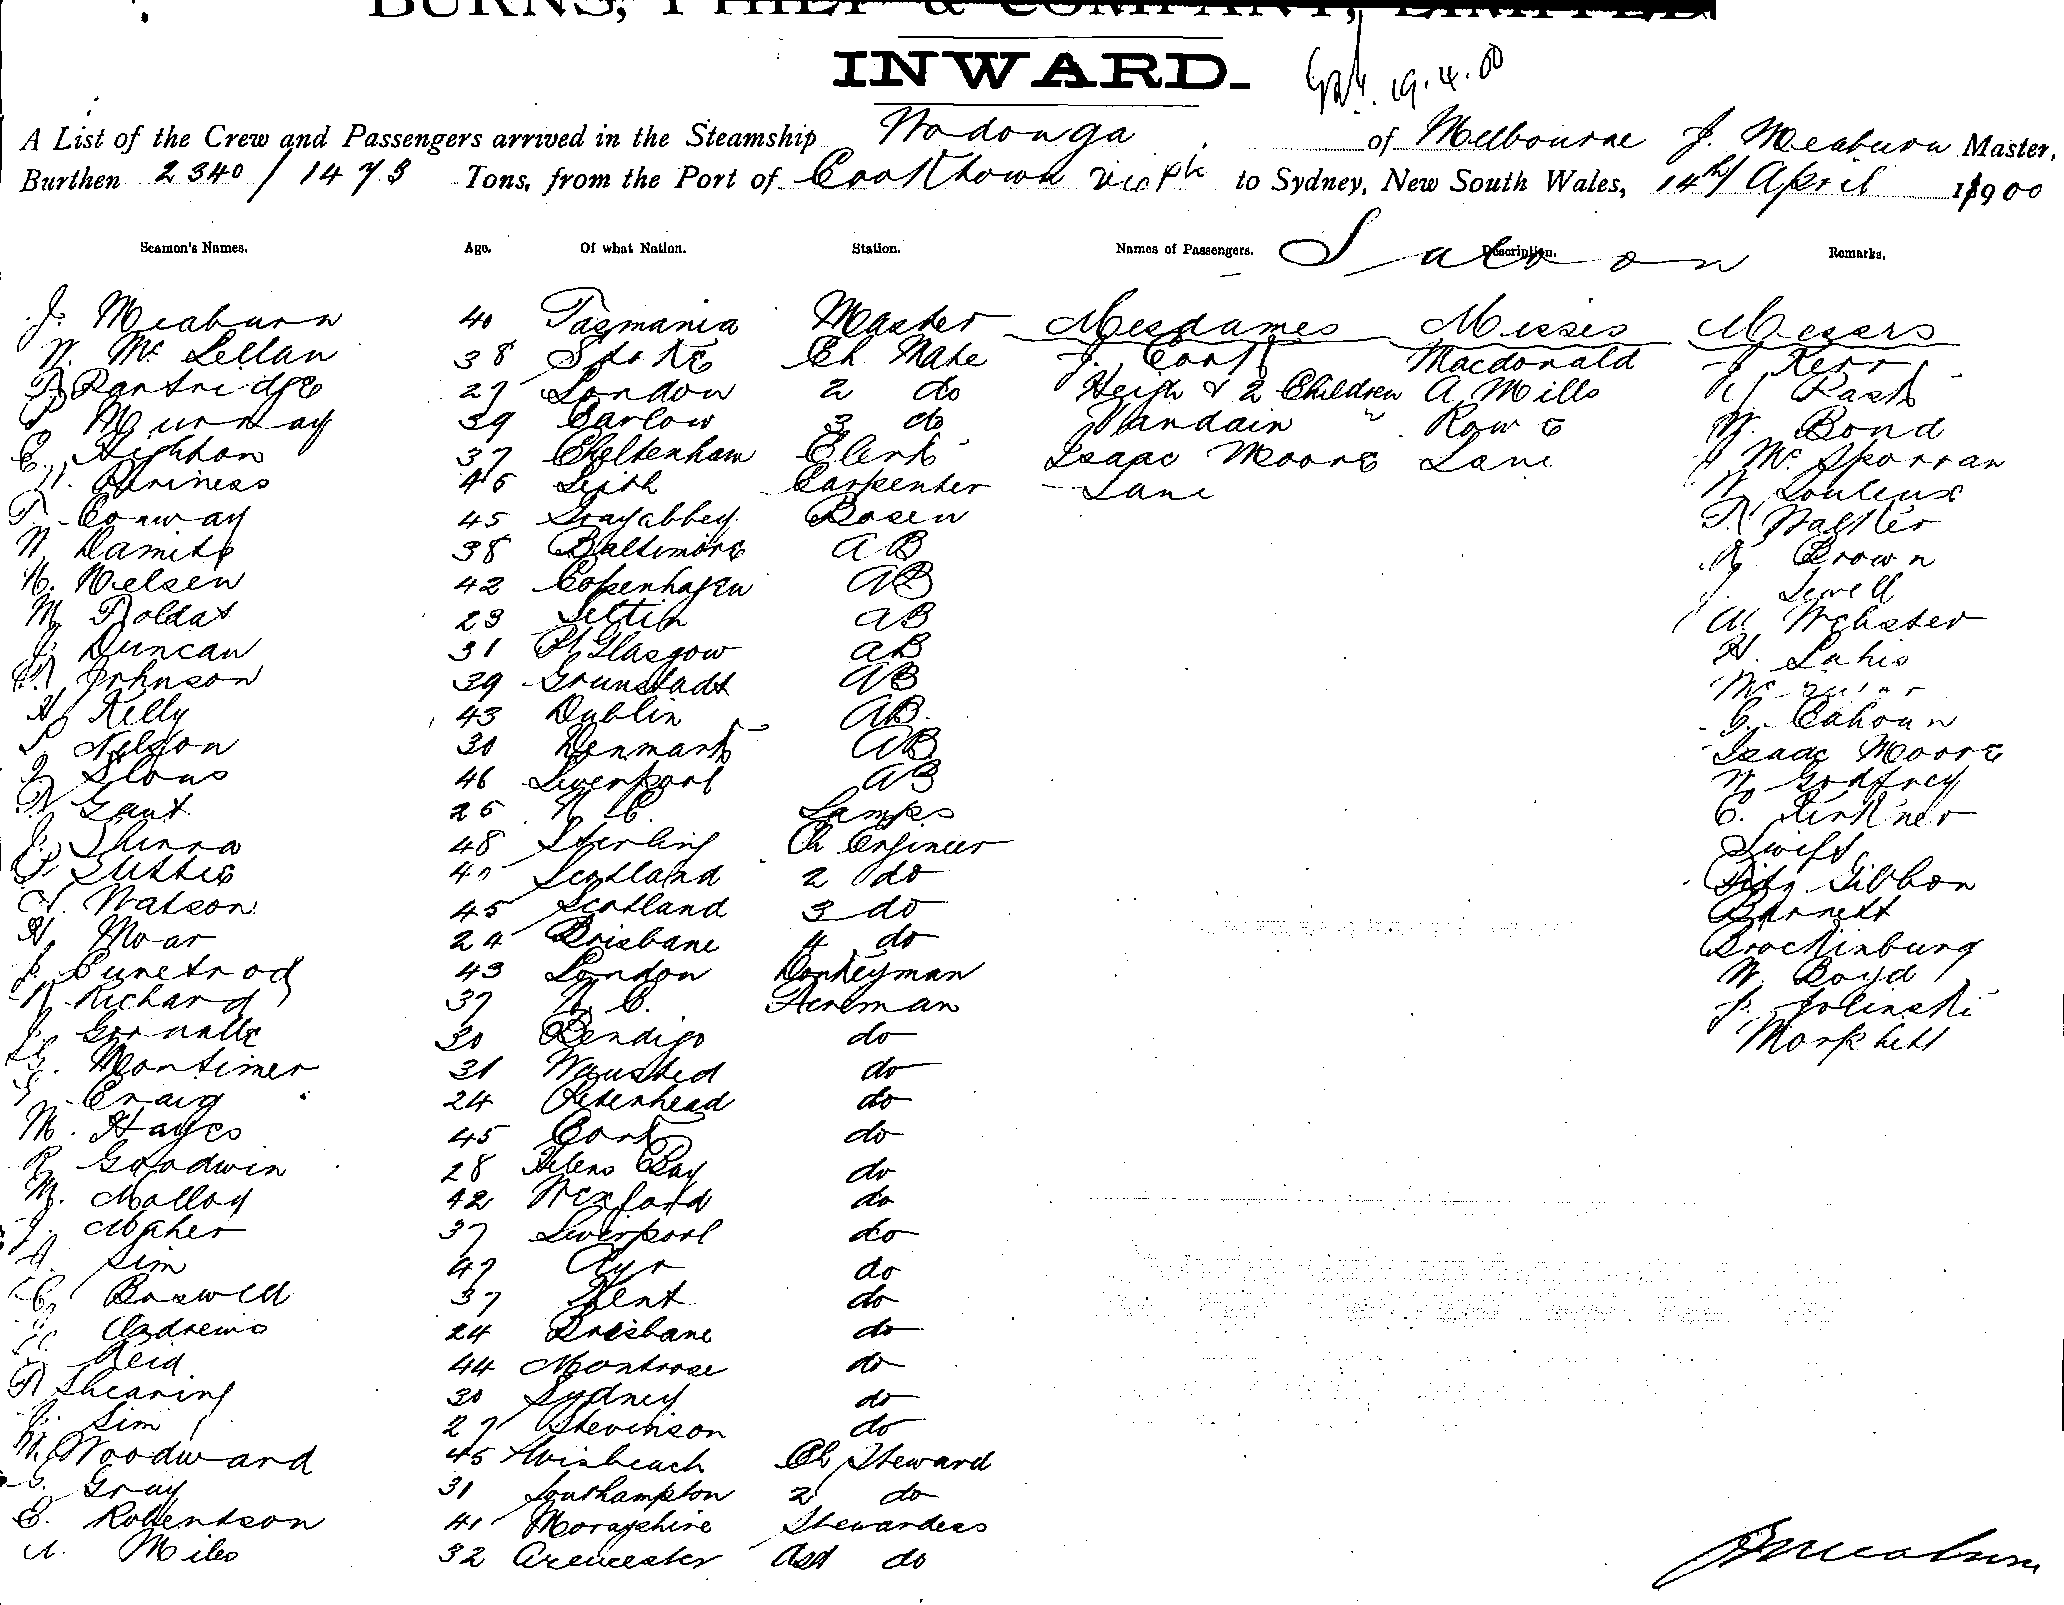 BURNS, PHILP & COMPANY, LIMITED
INWARD.
19.4.00
A List of the Crew and Passengers arrived in the Steamship Wodonga of Melbourne J. Meaburn Master,
Burthen 2340/1473 Tons, from the Port of Cooktown via pts to Sydney, New South Wales, 14th April 1900
Seamen's Names. Age. Of what Nation. Station. Names of Passengers. Description. Remarks.
Saloon
J. Meaburn 40 Tasmania Master Mesdames Misses Messrs
N. Mc Lellan 38 Stoke Ch Mate J. Cork Macdonald J Kerr
Partridge 27 London 2 do Heigh & 2 Children A Mills Rask
P Murray 39 Carlow 3 do Vandain " Rowe W. Bond
E. Highton 37 Cheltenham Clerk Isaac Moore Lane J Mc Sporran
Harkness 46 Leith Carpenter Lane
T. Conway 45 Grayabbey Bosen Walker
W Damits 38 Baltimore AB R. Brown
N. Nelsen 42 Copenhagen AB J. Sewell
M. Boldat 23 Settin AB W Webster
J. Duncan 31 Pt Glasgow AB H. Lahis
Johnson 39 Grunstadt AB Mc
H Kelly 43 Dublin AB G. Cahoun
P Nelson 30 Denmark AB Isaac Moore
J Slous 46 Liverpool AB W Godfrey
Gant 26 N. C. Lamps C. Kirkner
J. Shirra 48 Sterling Ch Engineer Swift
Scotland 2 do Fitz Gibbon
Watson 45 Scotland 3 do Barnett
H. Moar 24 Brisbane 4 do Brockinburg
J. Punetrod 43 London Donkeyman W. Boyd
Richard 37 N. C. Fireman Jolinski
J. 30 Bendigo do Morphett
G. Mortimer 31 Wansted do
Craig 24 Peterhead do
M. Hayes 45 Cork do
R Goodwin 28 Helens Bay do
M. Molloy 42 Wexford do
J. Maher 37 Liverpool do
A. Sim 47 Ayr do
C. Boswell 37 Kent do
Andrews 24 Brisbane do
Reid 44 Montrose do
Shearing 30 Sydney do
J. Sim 27 Stevinson do
W. Woodward 45 Wisbeach Ch Steward
G. Gray 31 Southampton 2 do
E. Robertson 41 Morayshire Stewardess
A. Miles 32 Cirencester Asst do
J Meaburn